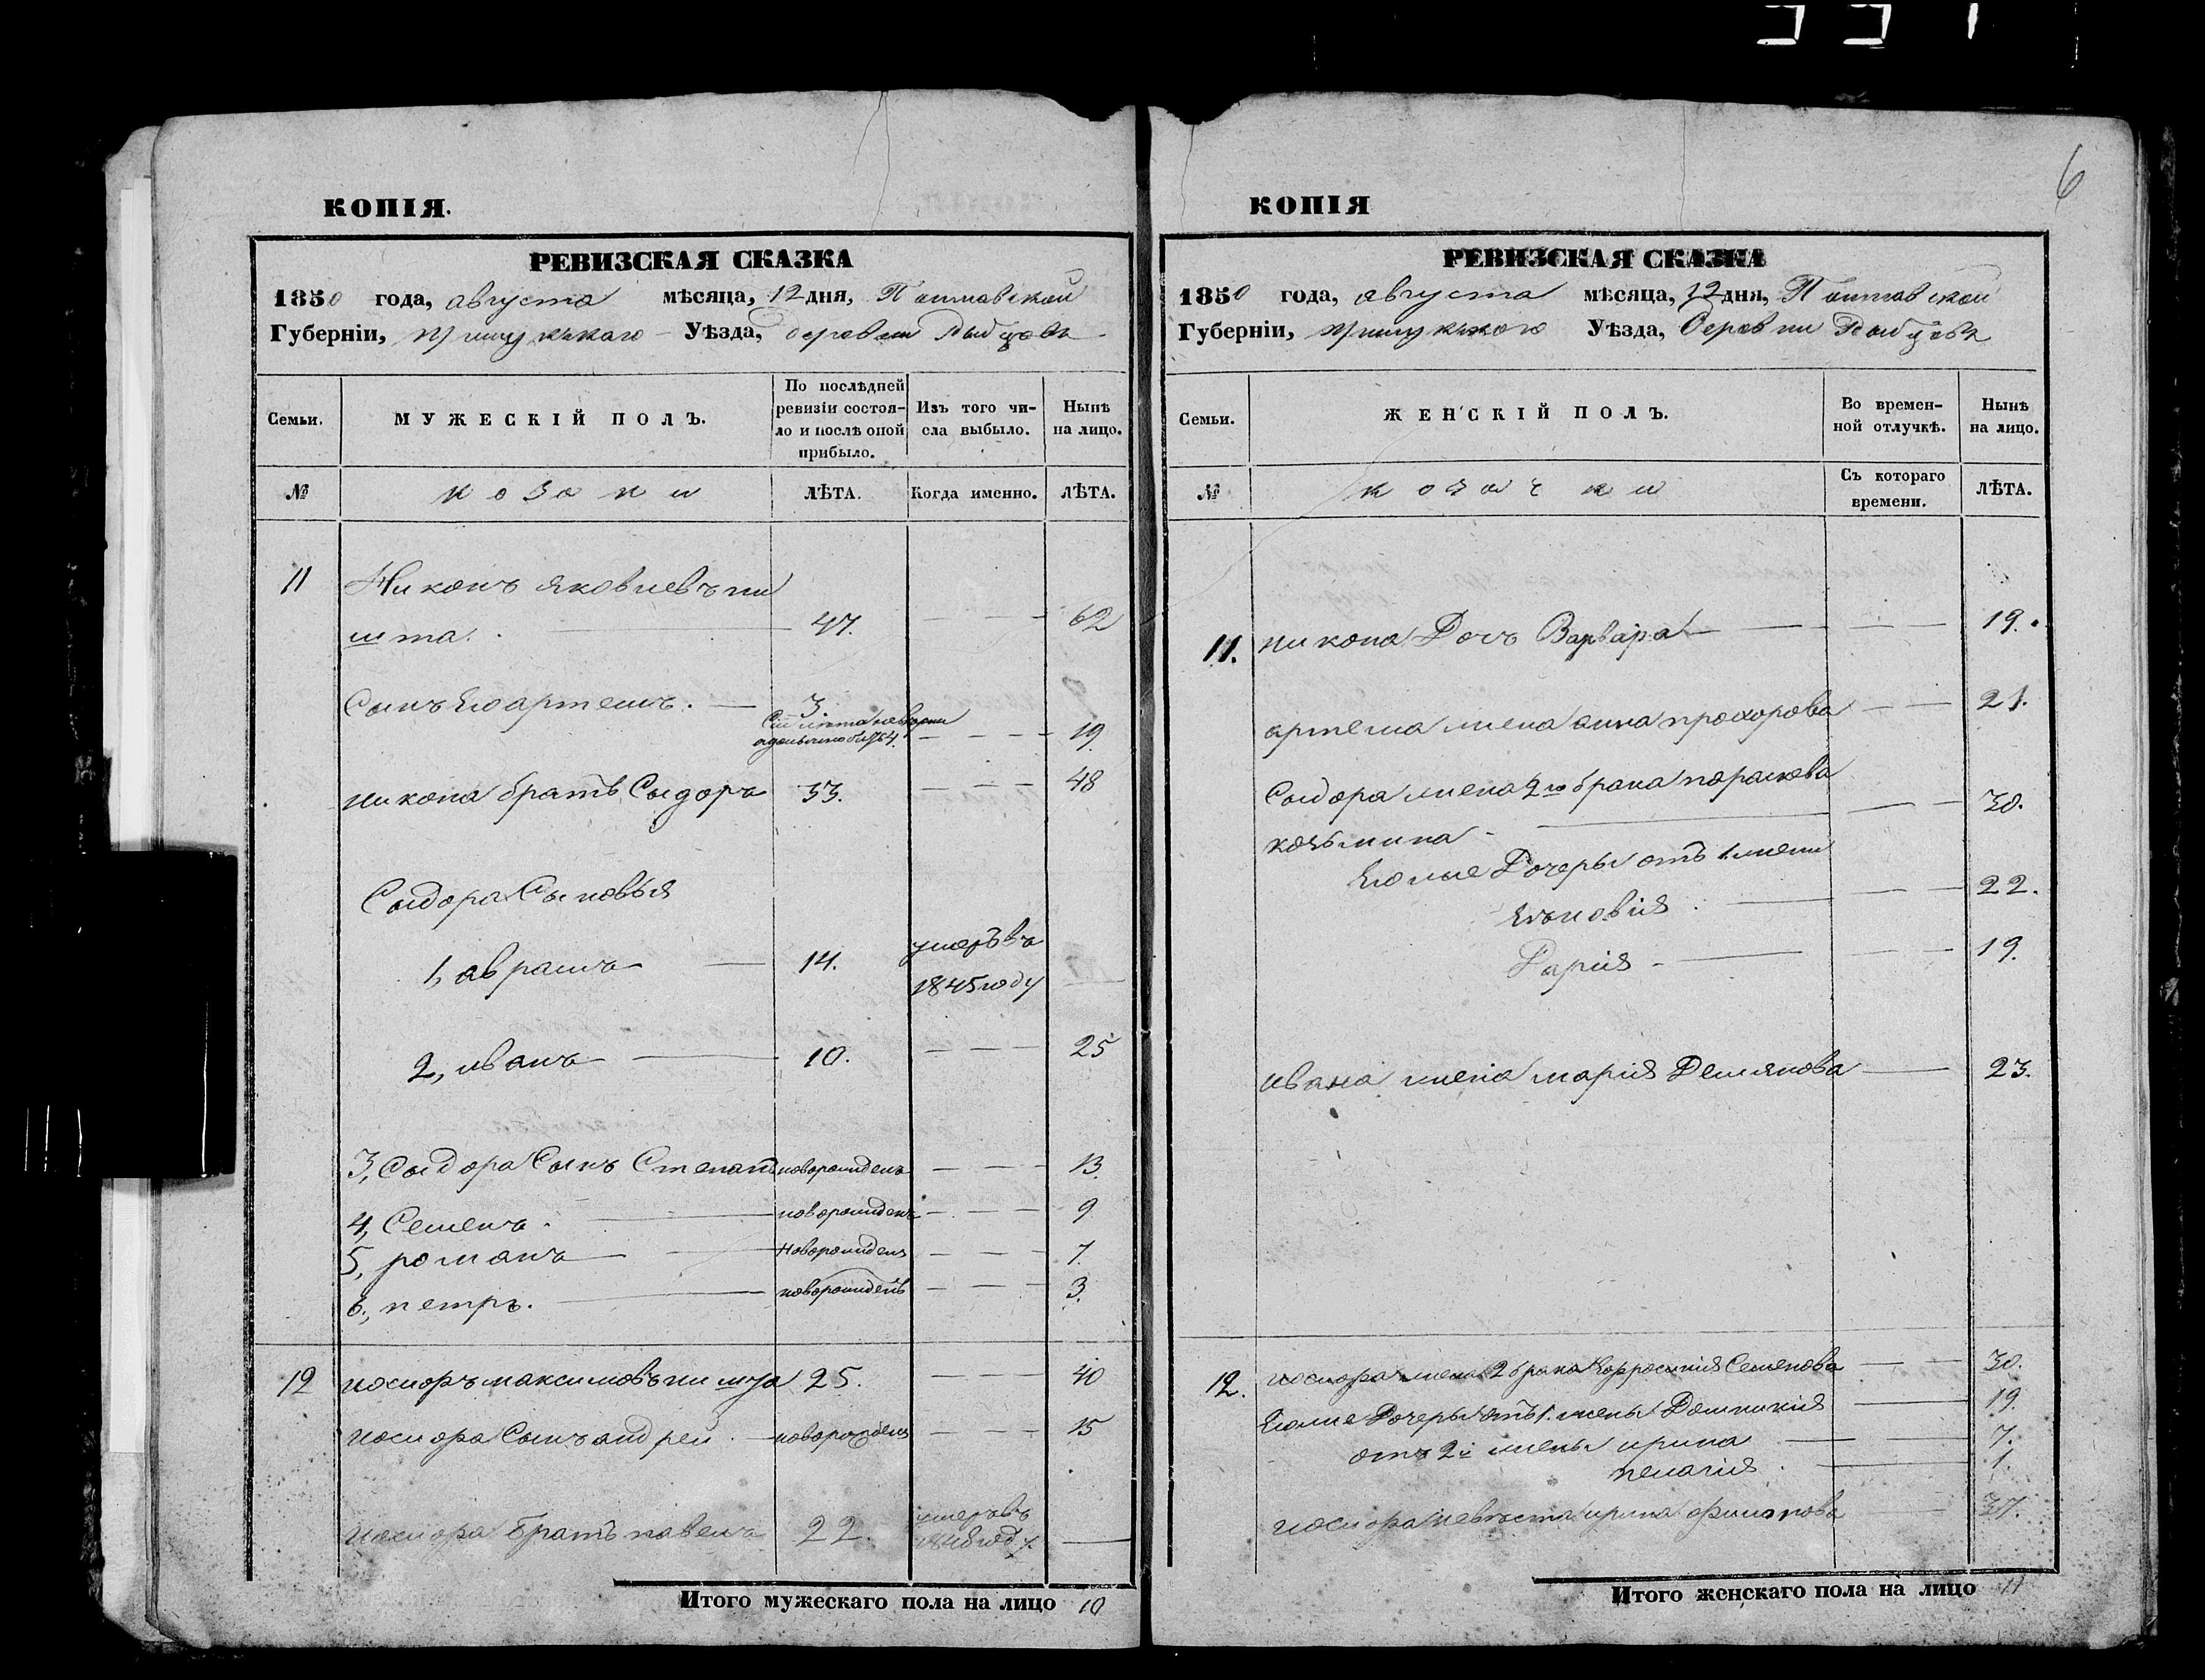 6
КОПІЯ.
РЕВИЗСКАЯ СКАЗКА
1850 года, августа мѣсяца, 12 дня, Полтавской
Губерніи, прилукскаго Уѣзда, деревни
Семьи.
МУЖЕСКІЙ ПОЛЪ.
По послѣдней ревизіи состояло и послѣ оной прибыло.
Изъ того числа выбыло.
Нынѣ на лицо.
№
козаки
ЛѢТА.
Когда именно.
ЛѢТА.
11 Никонъ яковлевъ пи
шта. 47. 62
Сынъ Его артемъ. 3.
19
никона братъ Сыдоръ 33. 48
Сыдора Сыновья
1, аврамъ 14. умеръ въ
1845 году
2, иванъ 10. 25
3, Сыдора Сынъ Степанъ новорожденъ 13.
4, Семенъ. новорожденъ 9
5, романъ новорожденъ 7.
6, петръ. новорожденъ 3.
12 максимовъ пишта 25. 40
Сынъ андрей новорожденъ 15
братъ павелъ 22. умеръ въ
1848 году
Итого мужескаго пола на лицо 10
КОПІЯ
РЕВИЗСКАЯ СКАЗКА
1850 года, августа мѣсяца, 12 дня, Полтавской
Губерніи, прилукскаго Уѣзда, Деревни
Семьи.
ЖЕНСКІЙ ПОЛЪ.
Во временной отлучкѣ.
Нынѣ на лицо.
№
козачки
Съ котораго времени.
ЛѢТА.
11. никона Дочь Варвара 19.
артема жена анна прохорова 21.
Сыдора жена 2го брака парасковa
козьмина 30.
Его же Дочеры отъ 1 жены
22.
Дарія 19.
ивана жена марія Демянова 23.
12. жена 2 брака Ефросинія Семенова 30.
Его же Дочеры отъ 1. жены Домникія 19.
отъ 2й жены ирина 7.
пелагия. 1.
невѣста ирина филипова 37.
Итого женскаго пола на лицо 11